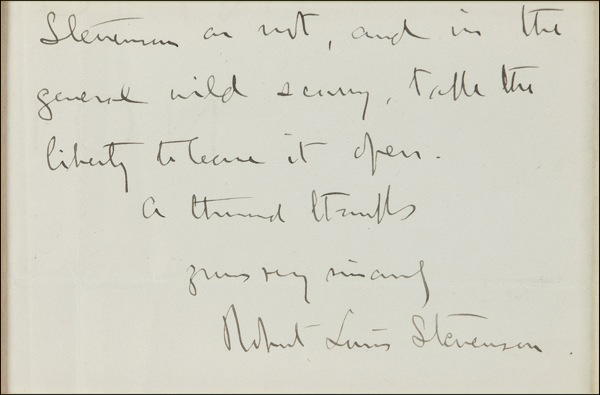 Stevenson or not, and in the
general wild scurry, take the
liberty to leave it open.
A thousand thanks
yours very sincerely
Robert Louis Stevenson